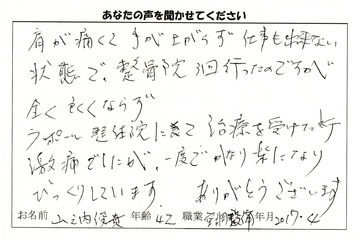 あなたの声を聞かせてください
肩が痛くて手が上がらず仕事も出来ない
状態で、整骨院3回行ったのですが
全く良くならず
ラポール整体院に来て治療を受けた時
激痛でしたが、一度でかなり楽になり
びっくりしています。ありがとうございます
お名前 山之内俊 年齢 42 職業 年月 2017.4